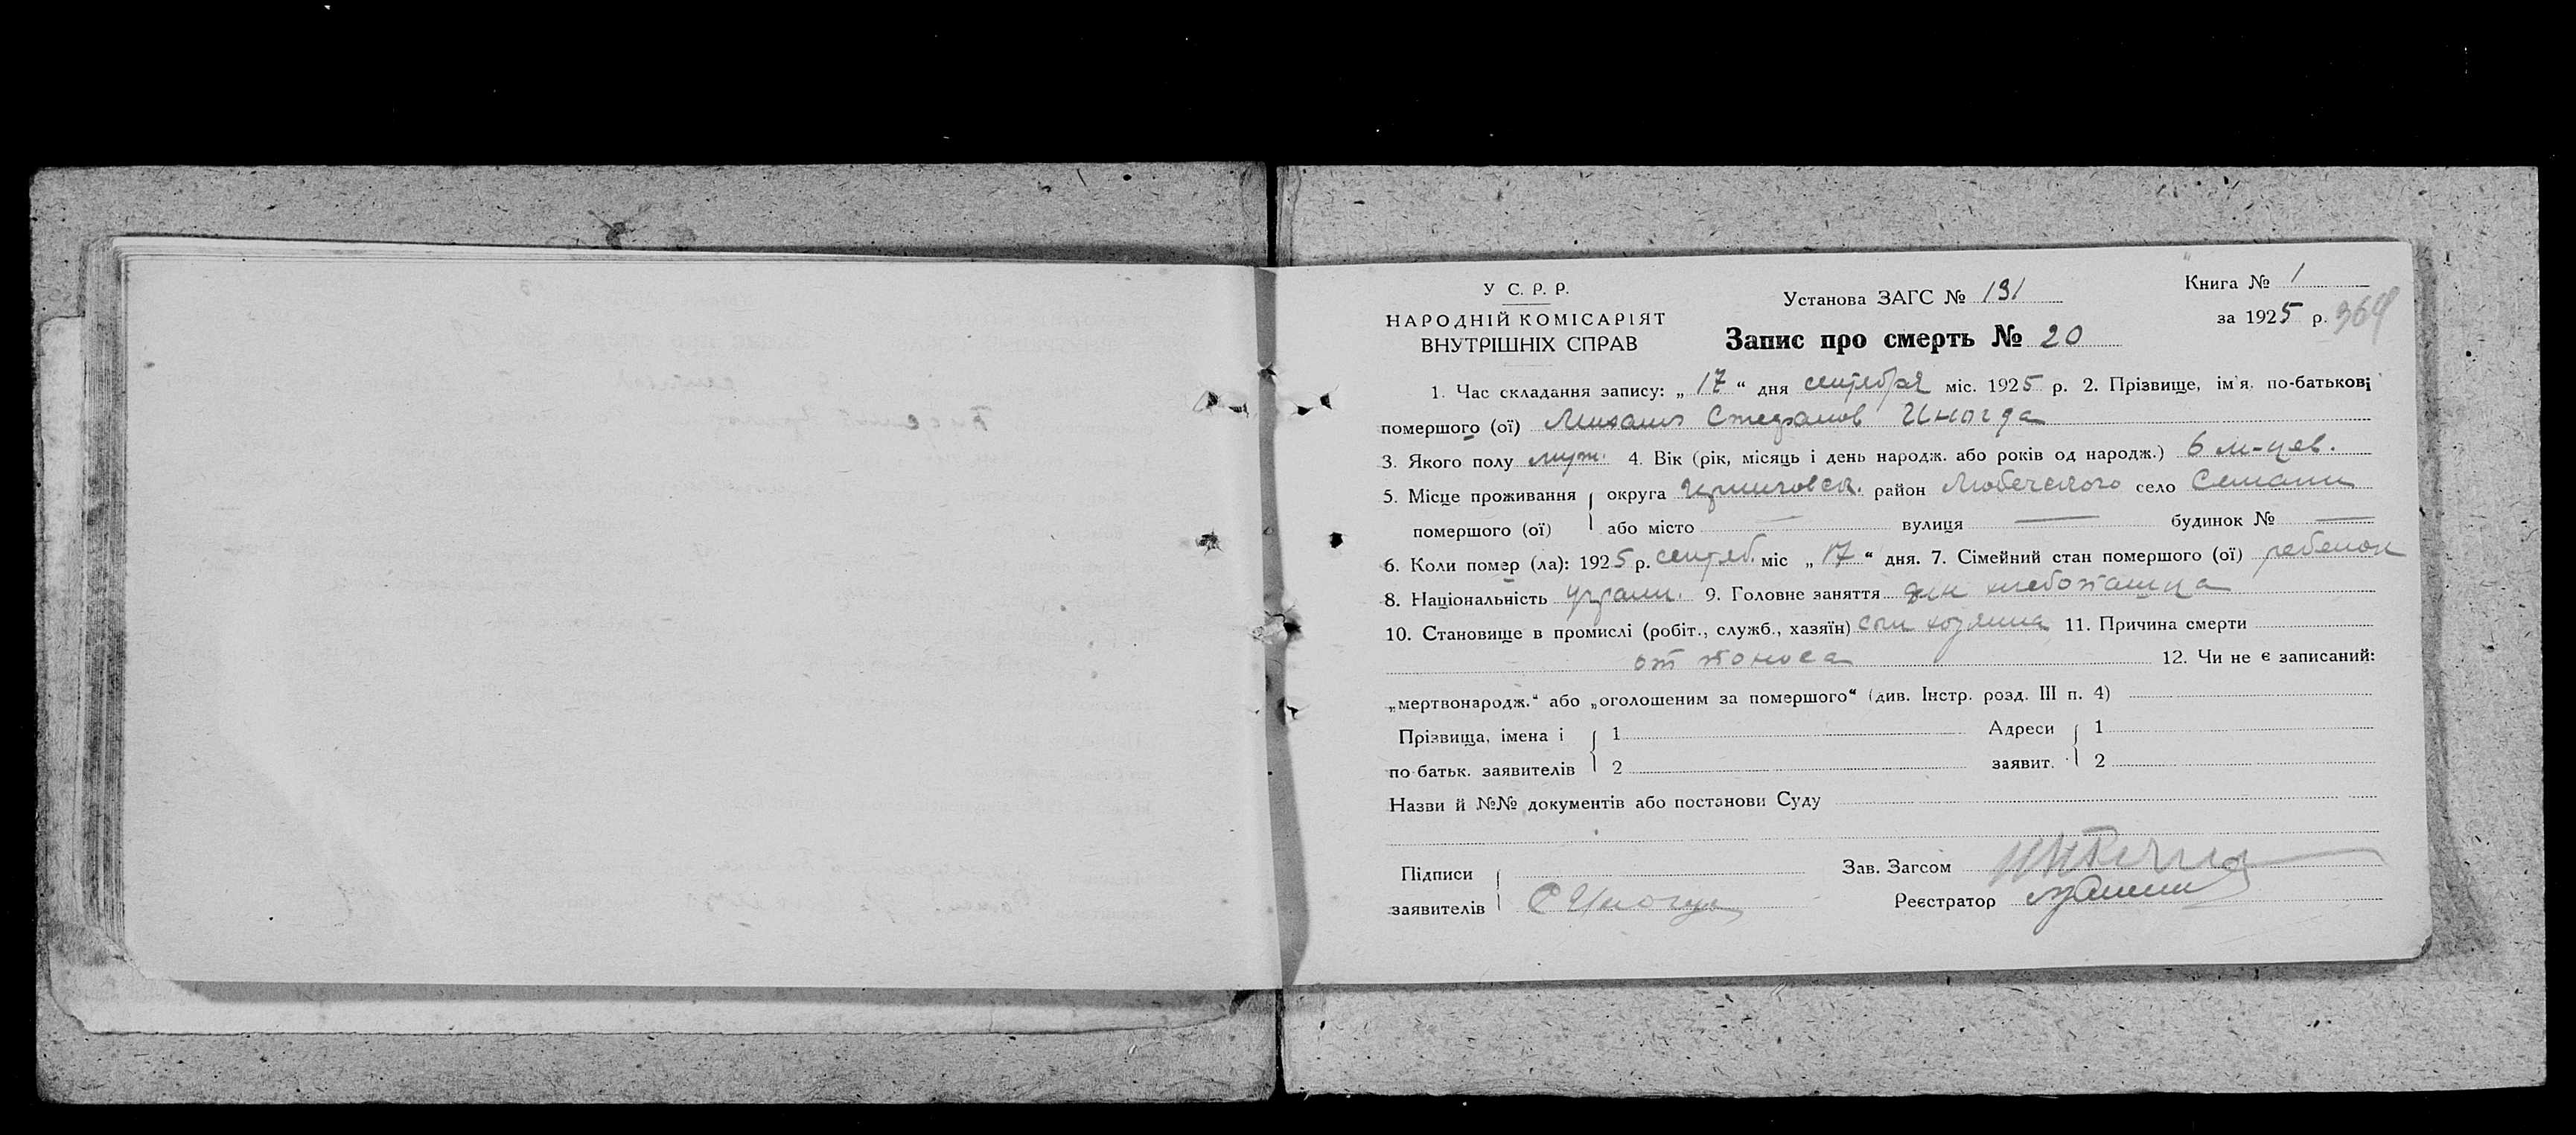 У С. Р. Р.
НАРОДНІЙ КОМІСАРІЯТ
ВНУТРІШНІХ СПРАВ
Установа ЗАГС № 131
Запис про смерть № 20
Книга № 1
за 1925 р. 364
1. Час складання запису: „ 17 “ дня сентября міс. 1925 р. 2. Прізвище, ім'я, по-батькові
помершого (ої) Михаил Стефанов Иногда
3. Якого полу муж. 4. Вік (рік, місяць і день народж. або років од народж.) 6 м-цев.
5. Місце проживання округа Черниговск. район Любечского село Семаки
помершого (ої) або місто — вулиця — будинок № —
6. Коли помер (ла): 1925 р. сентеб. міс „ 17 “ дня. 7. Сімейний стан помершого (ої) ребенок
8. Національність 9. Головне заняття хлебопашца
10. Становище в промислі (робіт., служб., хазяїн) сын хозяина 11. Причина смерти
от поноса 12. Чи не є записаний:
„мертвонародж.“ або „оголошеним за помершого“ (див. Інстр. розд. III п. 4)
Прізвища, імена і 1 Адреси 1
по батьк. заявителів 2 заявит. 2
Назви й №№ документів або постанови Суду
Підписи Зав. Загсом
заявителів С Иногда Реєстратор